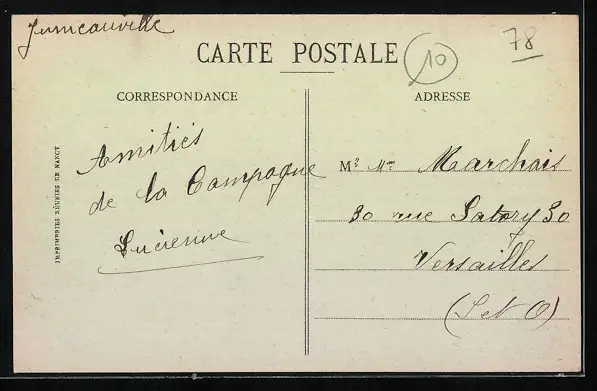 Jumeauville
CARTE POSTALE
10
78
CORRESPONDANCE
ADRESSE
Amitiés
de la Campagne
Lucienne
Mr Mme Marchais
30 rue Satory 30
Versailles
(S et O)
IMPRIMERIES RÉUNIES DE NANCY